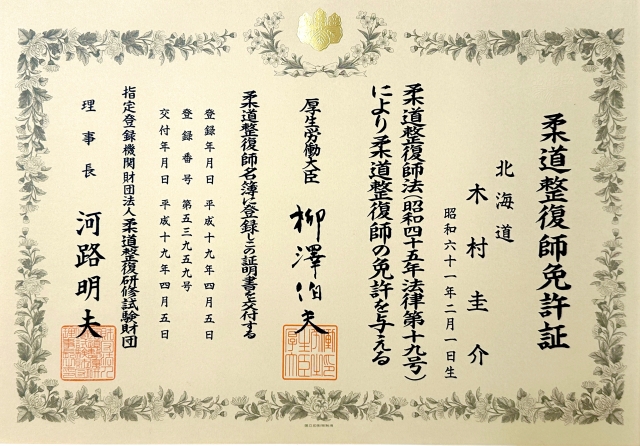 柔道整復師免許証
北海道
木村圭介
昭和六十一年二月一日生
柔道整復師法(昭和四十五年法律第十九号)
により柔道整復師の免許を与える
厚生労働大臣 柳澤伯夫
柔道整復師名簿に登録しこの証明書を交付する
登録年月日 平成十九年四月五日
登録番号 第五三九五九号
交付年月日 平成十九年四月五日
指定登録機関財団法人柔道整復研修試験財団
理事長 河路明夫